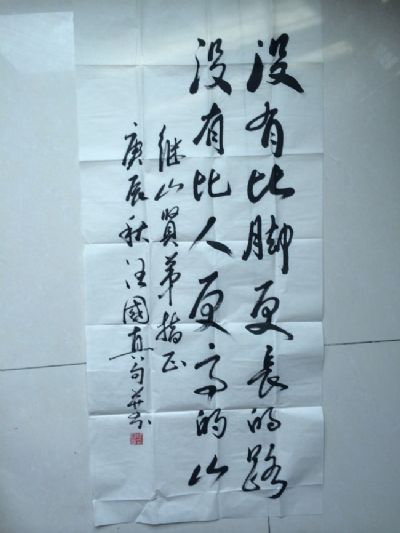 没有比脚更长的路
没有比人更高的山
继山贤弟指正
庚辰秋汪國真句并书